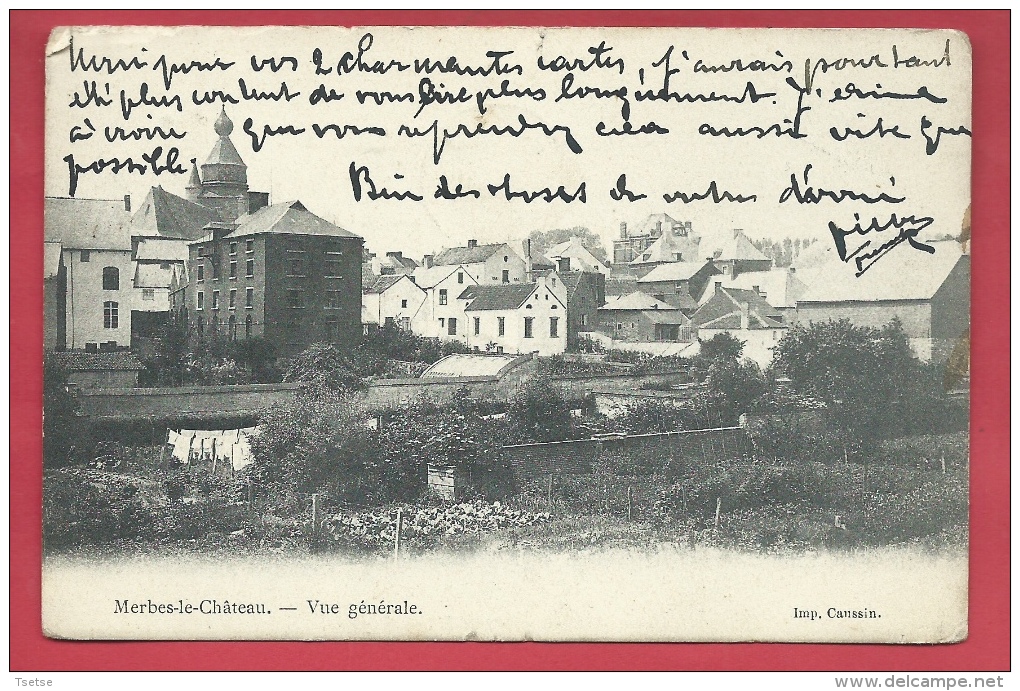 Merci pour vos 2 charmantes cartes, j'aurais pourtant
été plus content de vous lire plus longuement. J'
à croire que vous reprendrez cela aussi vite que
possible
Bien des choses de votre
Merbes-le-Château. — Vue générale.
Imp. Caussin.
Tsetse
www.delcampe.net